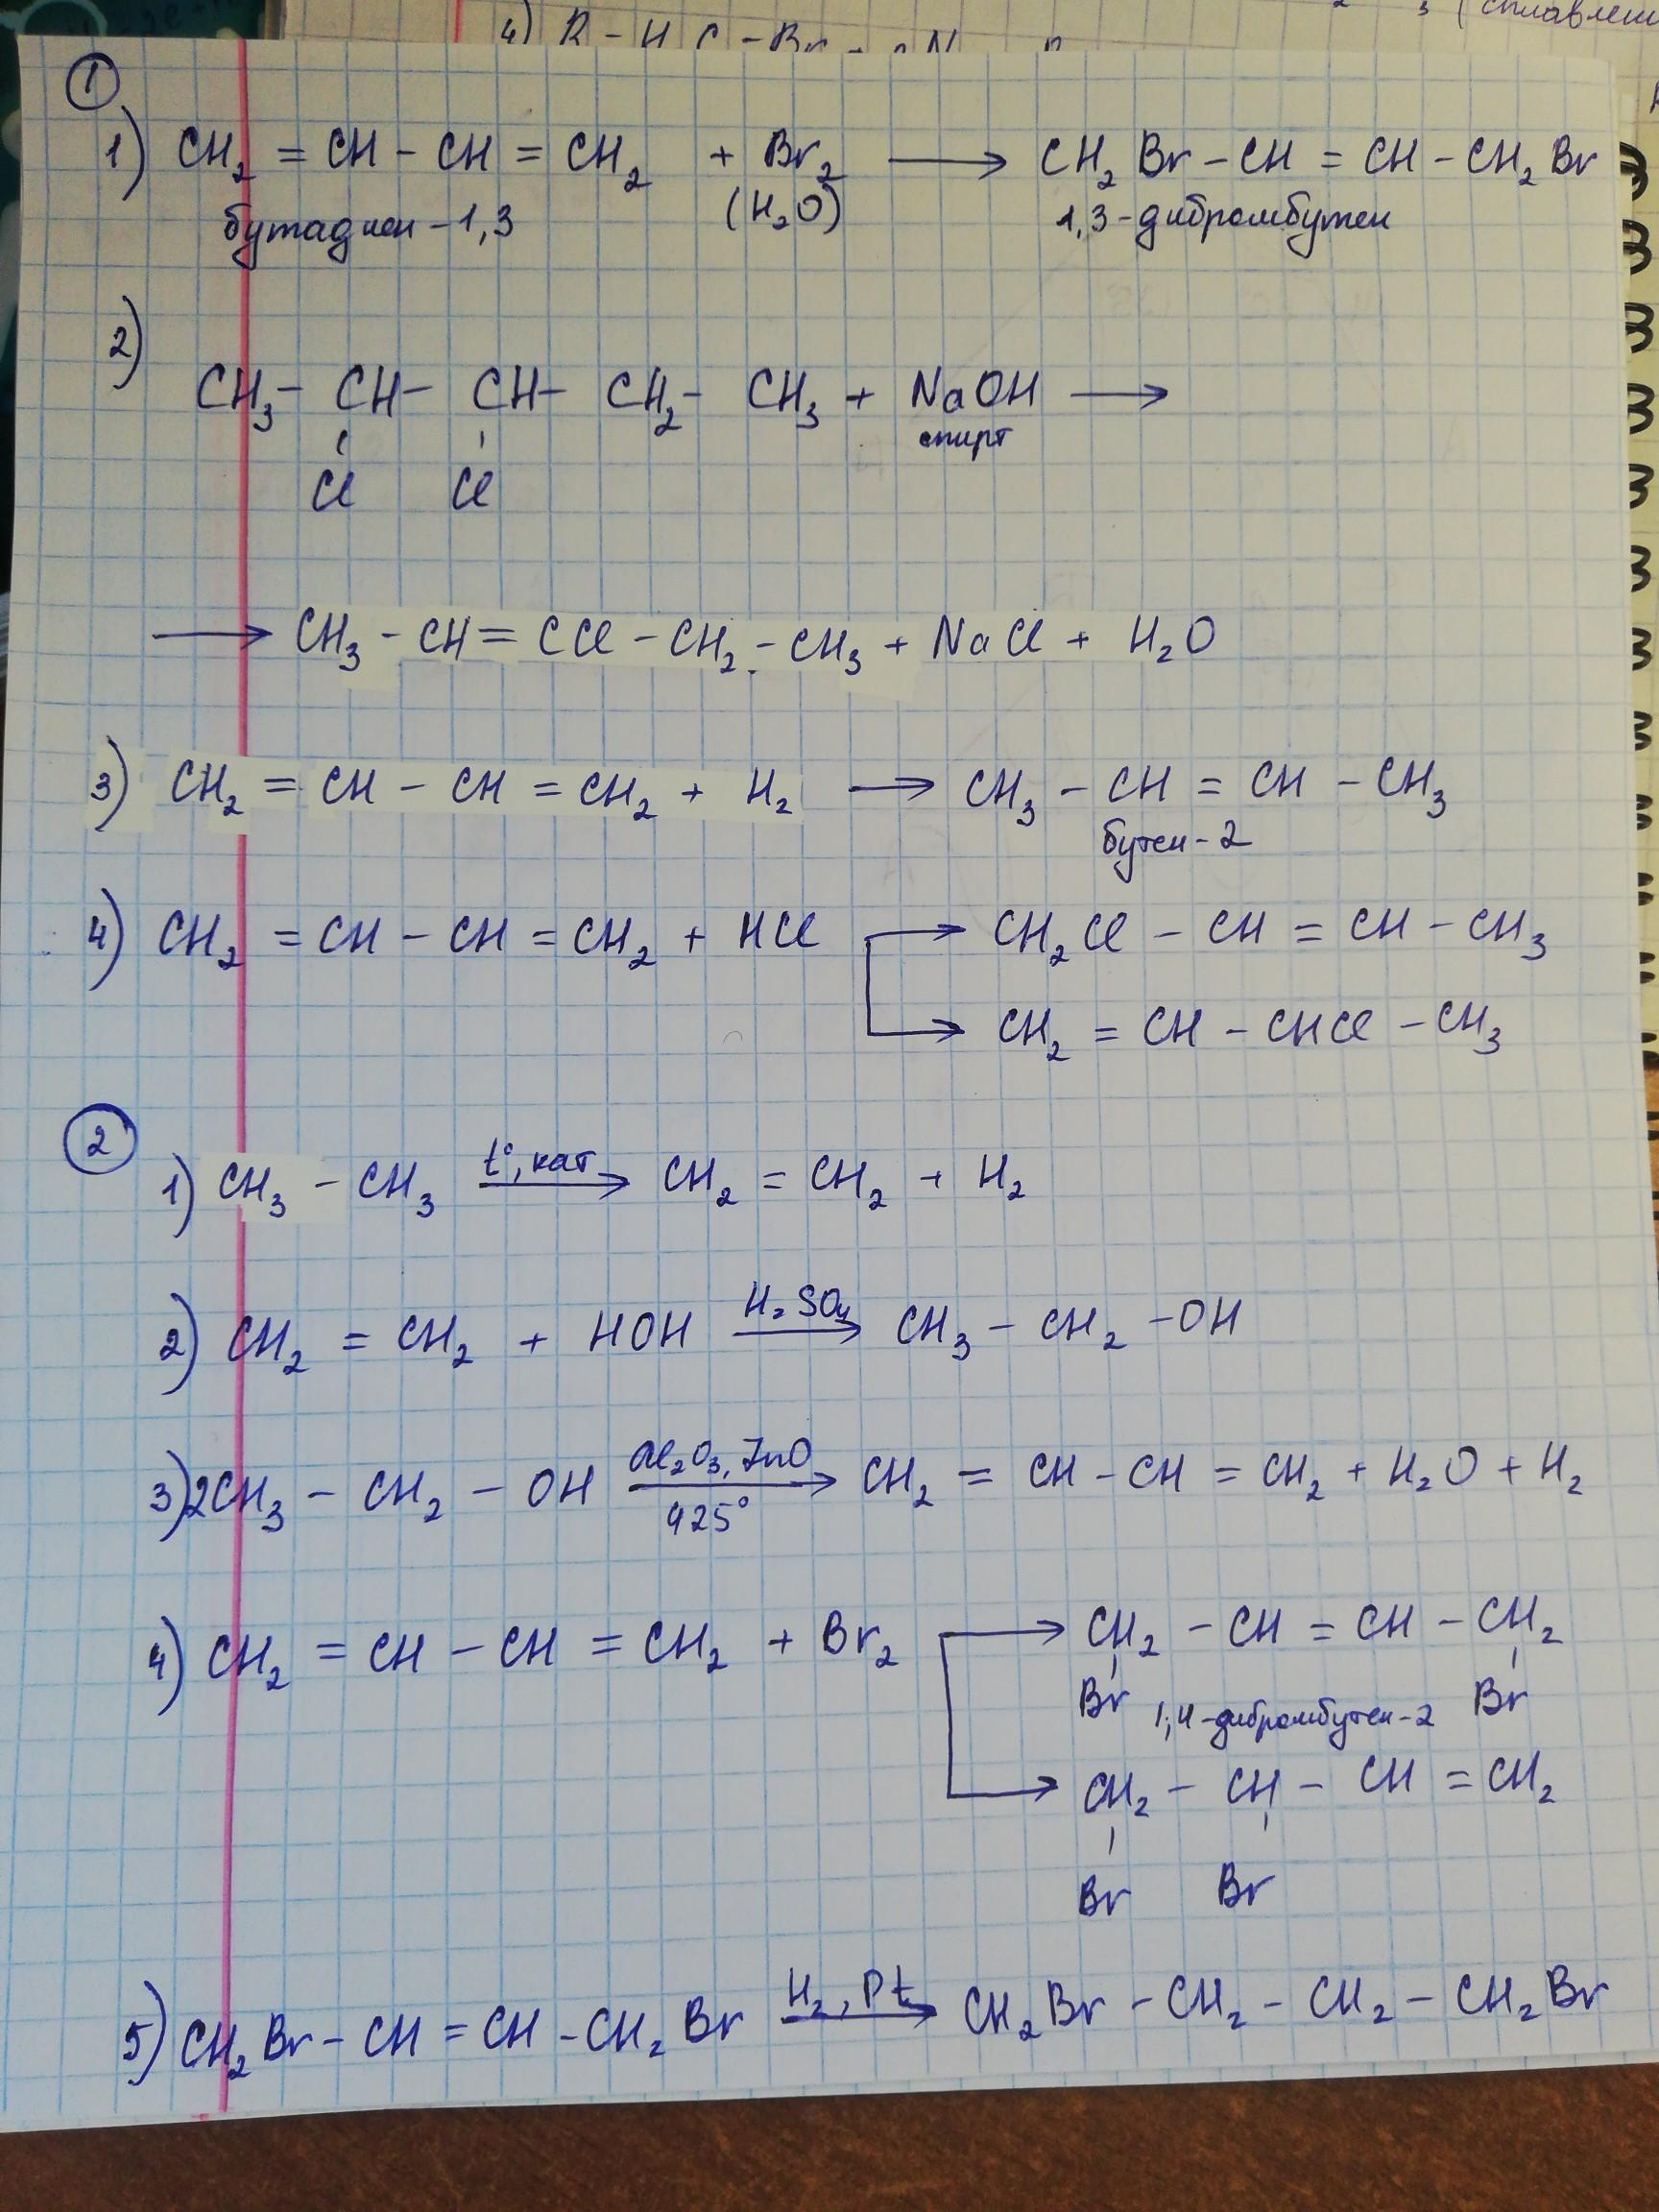 4) R - H C - Br
(сплавлен
1
1) CH₂ = CH - CH = CH₂ + Br₂ ⟶ CH₂Br - CH = CH - CH₂Br
бутадиен-1,3 (H₂O) 1,3-дибромбутен
2)
CH₃ - CH - CH - CH₂ - CH₃ + NaOH ⟶
спирт
Cl Cl
⟶ CH₃ - CH = CCl - CH₂ - CH₃ + NaCl + H₂O
3) CH₂ = CH - CH = CH₂ + H₂ ⟶ CH₃ - CH = CH - CH₃
бутен-2
4) CH₂ = CH - CH = CH₂ + HCl ⟶ CH₂Cl - CH = CH - CH₃
⟶ CH₂ = CH - CHCl - CH₃
2
1) CH₃ - CH₃ t°, кат ⟶ CH₂ = CH₂ + H₂
2) CH₂ = CH₂ + HOH H₂SO₄ ⟶ CH₃ - CH₂ - OH
3) 2CH₃ - CH₂ - OH Al₂O₃, ZnO ⟶ CH₂ = CH - CH = CH₂ + H₂O + H₂
425°
4) CH₂ = CH - CH = CH₂ + Br₂ ⟶ CH₂ - CH = CH - CH₂
Br 1,4-дибромбутен-2 Br
⟶ CH₂ - CH - CH = CH₂
Br Br
5) CH₂Br - CH = CH - CH₂Br H₂, Pt ⟶ CH₂Br - CH₂ - CH₂ - CH₂Br